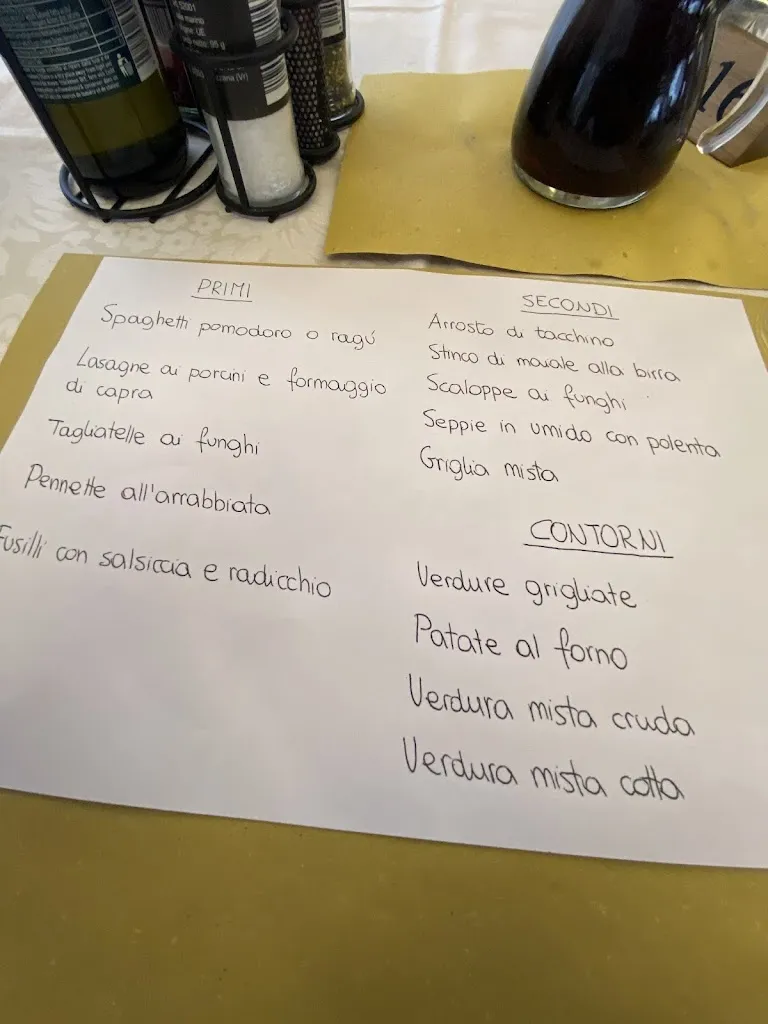 PRIMI
Spaghetti pomodoro o ragú
Lasagne ai porcini e formaggio
di capra
Tagliatelle ai funghi
Pennette all'arrabbiata
Fusilli con salsiccia e radicchio
SECONDI
Arrosto di tacchino
Stinco di maiale alla birra
Scaloppe ai funghi
Seppie in umido con polenta
Griglia mista
CONTORNI
Verdure grigliate
Patate al forno
Verdura mista cruda
Verdura mista cotta